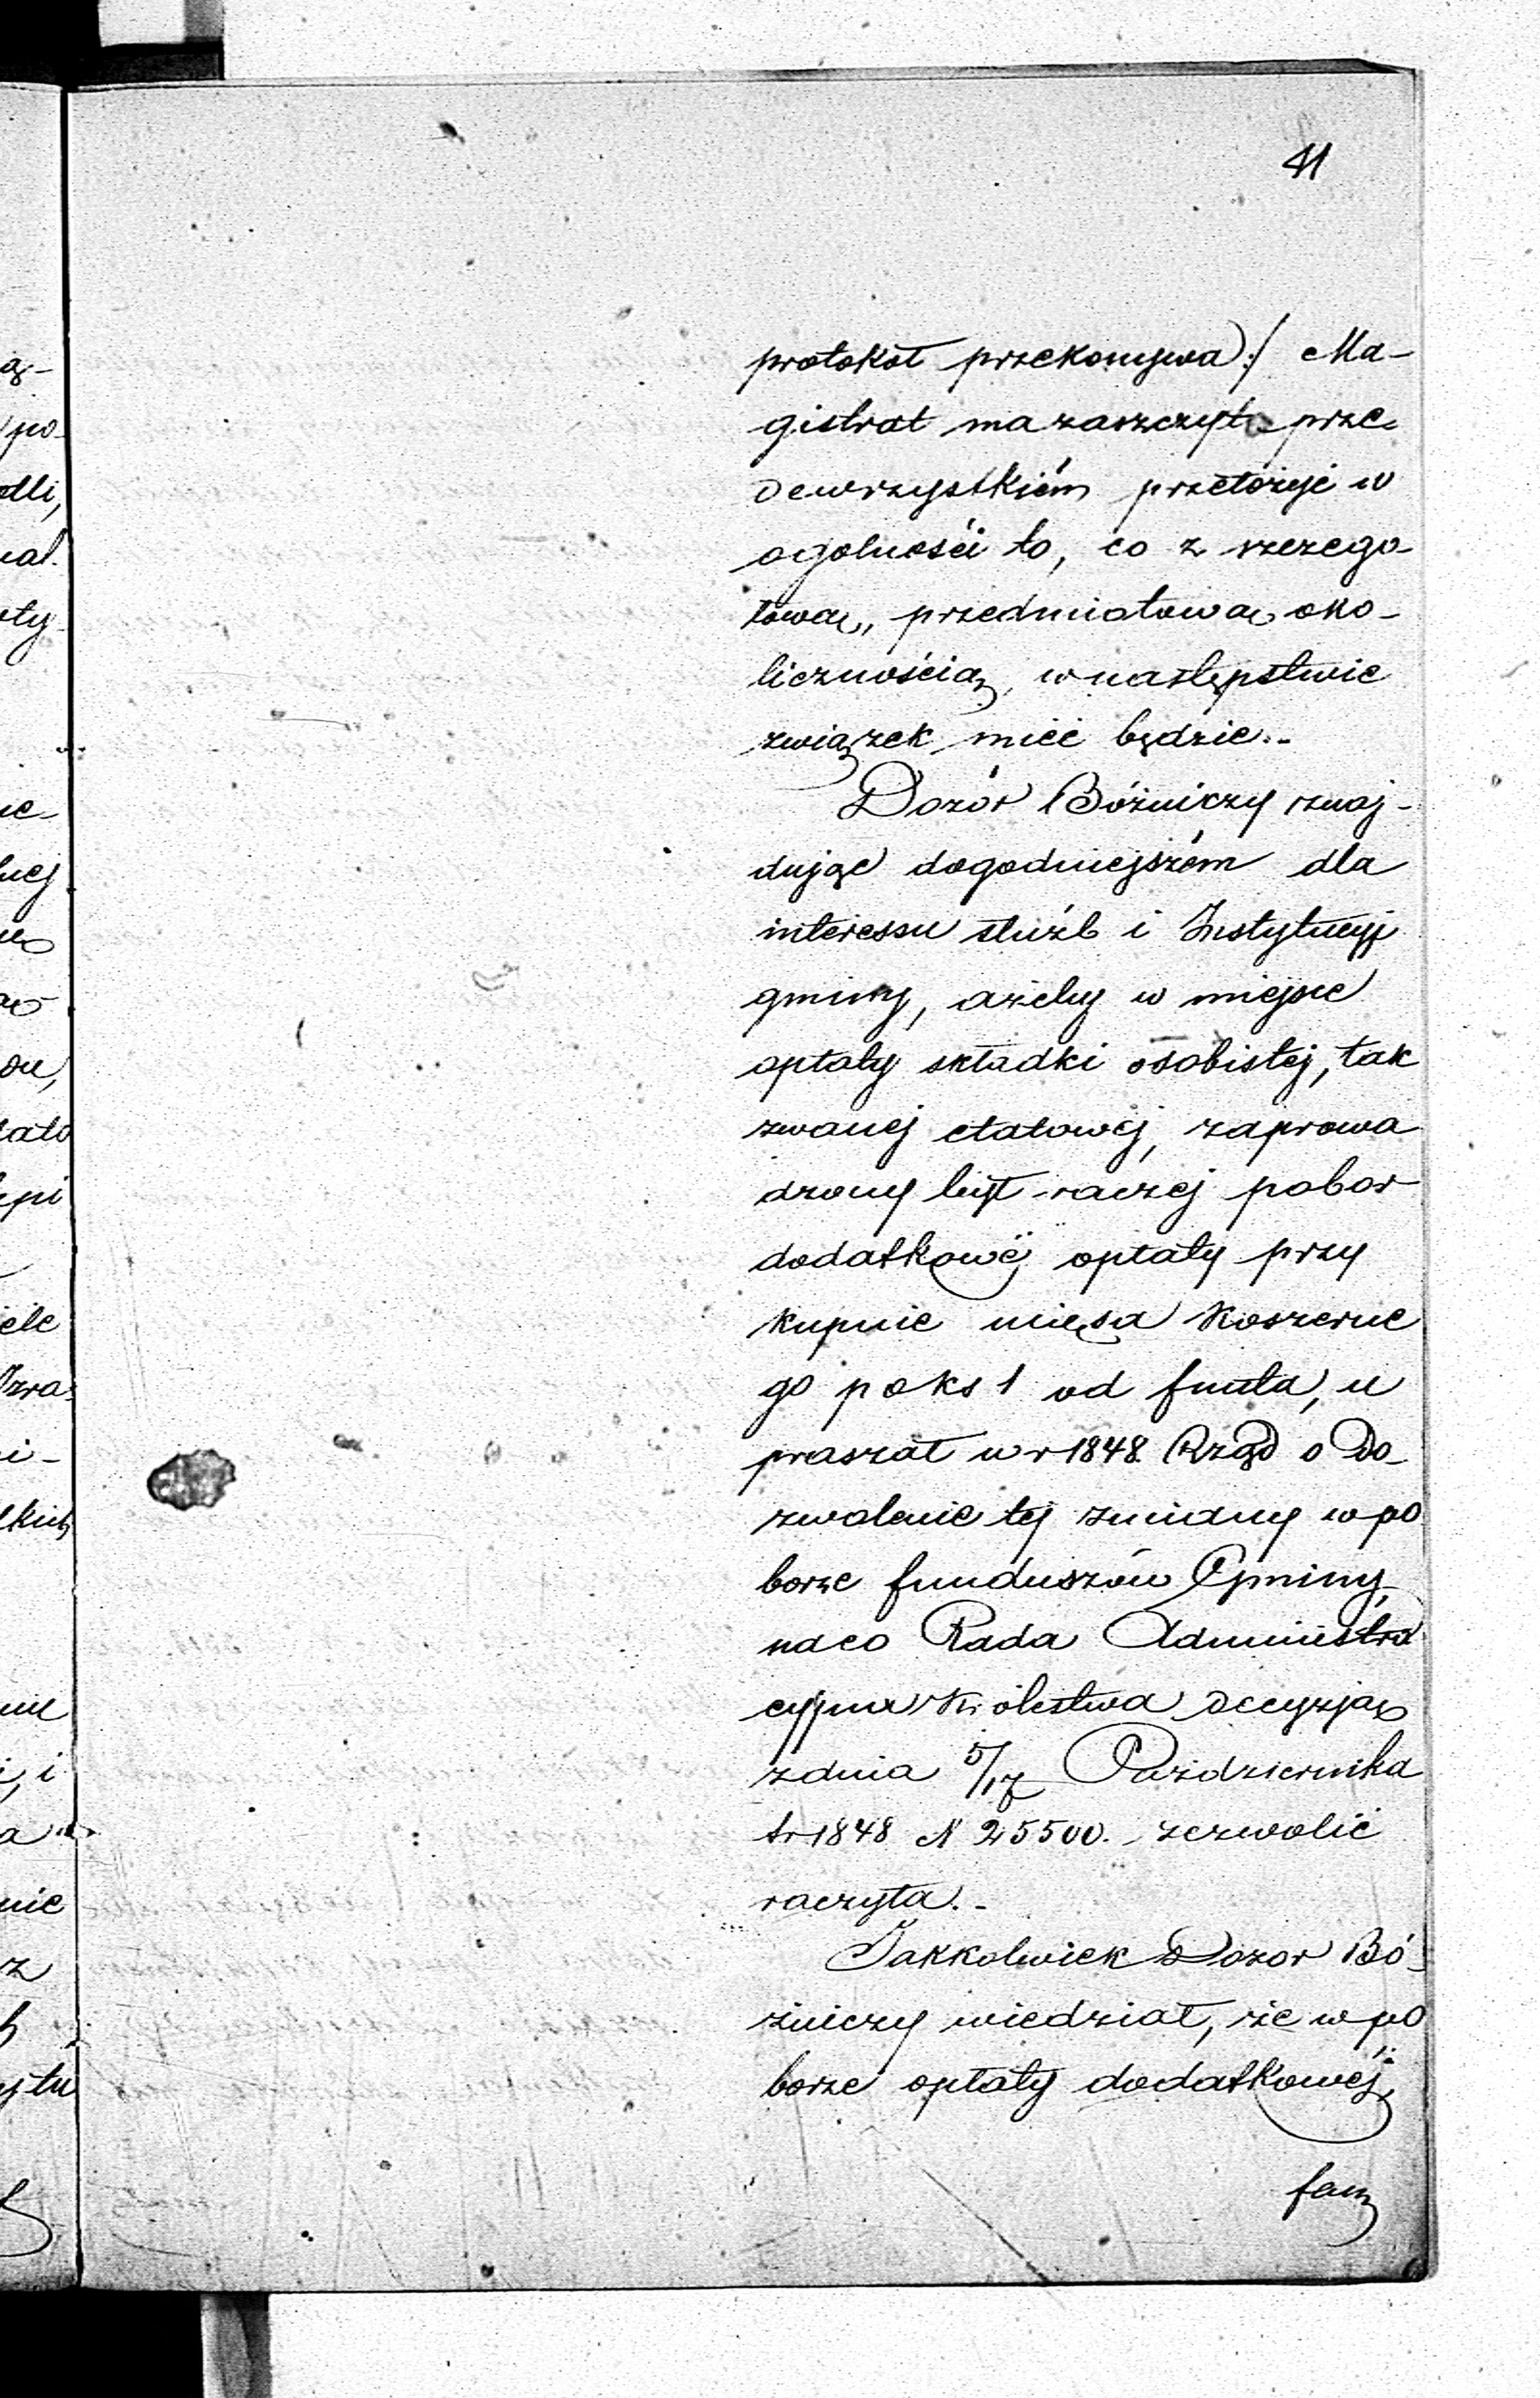 41
protokół przekonywa):/ Ma-
gistrat ma zaszczyt prze-
dewszystkiém przełożyć w
ogolności to, co z szczego-
łową, przedmiotową oko-
licznością, w następstwie
związek mieć będzie.-
Dozór Bóżniczy znaj-
dując dogodniejszém dla
interessu służb i Instytucyj
gminy, ażeby w miejsce
opłaty składki osobistej, tak
zwanej etatowej, zaprowa
dzony był raczej pobor
dodatkowéj opłaty przy
kupnie mięsa koszerne
go po ks 1 od funta, u
praszał w r 1848 Rząd o do-
zwolenie tej zmiany w po
borze funduszów Gminy,
na co Rada Administra
cyjna Królestwa decyzją
z dnia 5/17 Października
tr 1848 N 25500. zezwolić
raczyła.-
Jakkolwiek Dozor Bó-
żniczy wiedział, że w po
borze opłaty dodatkowéj,